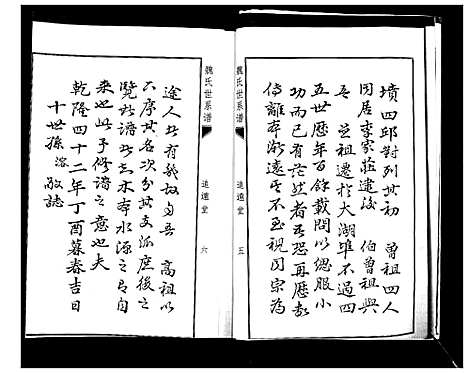 墳四邱對列其初　曾祖四人
同居李家莊建後　伯曾祖興
吾　旦祖遷於大湖埠不過四
五世歷年百餘載間以緦服小
功而已有茫然者又恐再歷數
傳離本漸遠其不至視同宗為
魏氏世系譜
追遠堂
五
魏氏世系譜
追遠堂
六
途人者有幾故自吾　高祖以
下序其名次分其支派庶後之
覽此譜者知木本水源之有自
來也此予修譜之意也夫
乾隆四十二年丁酉暮春吉日
十世孫　溶　敬誌